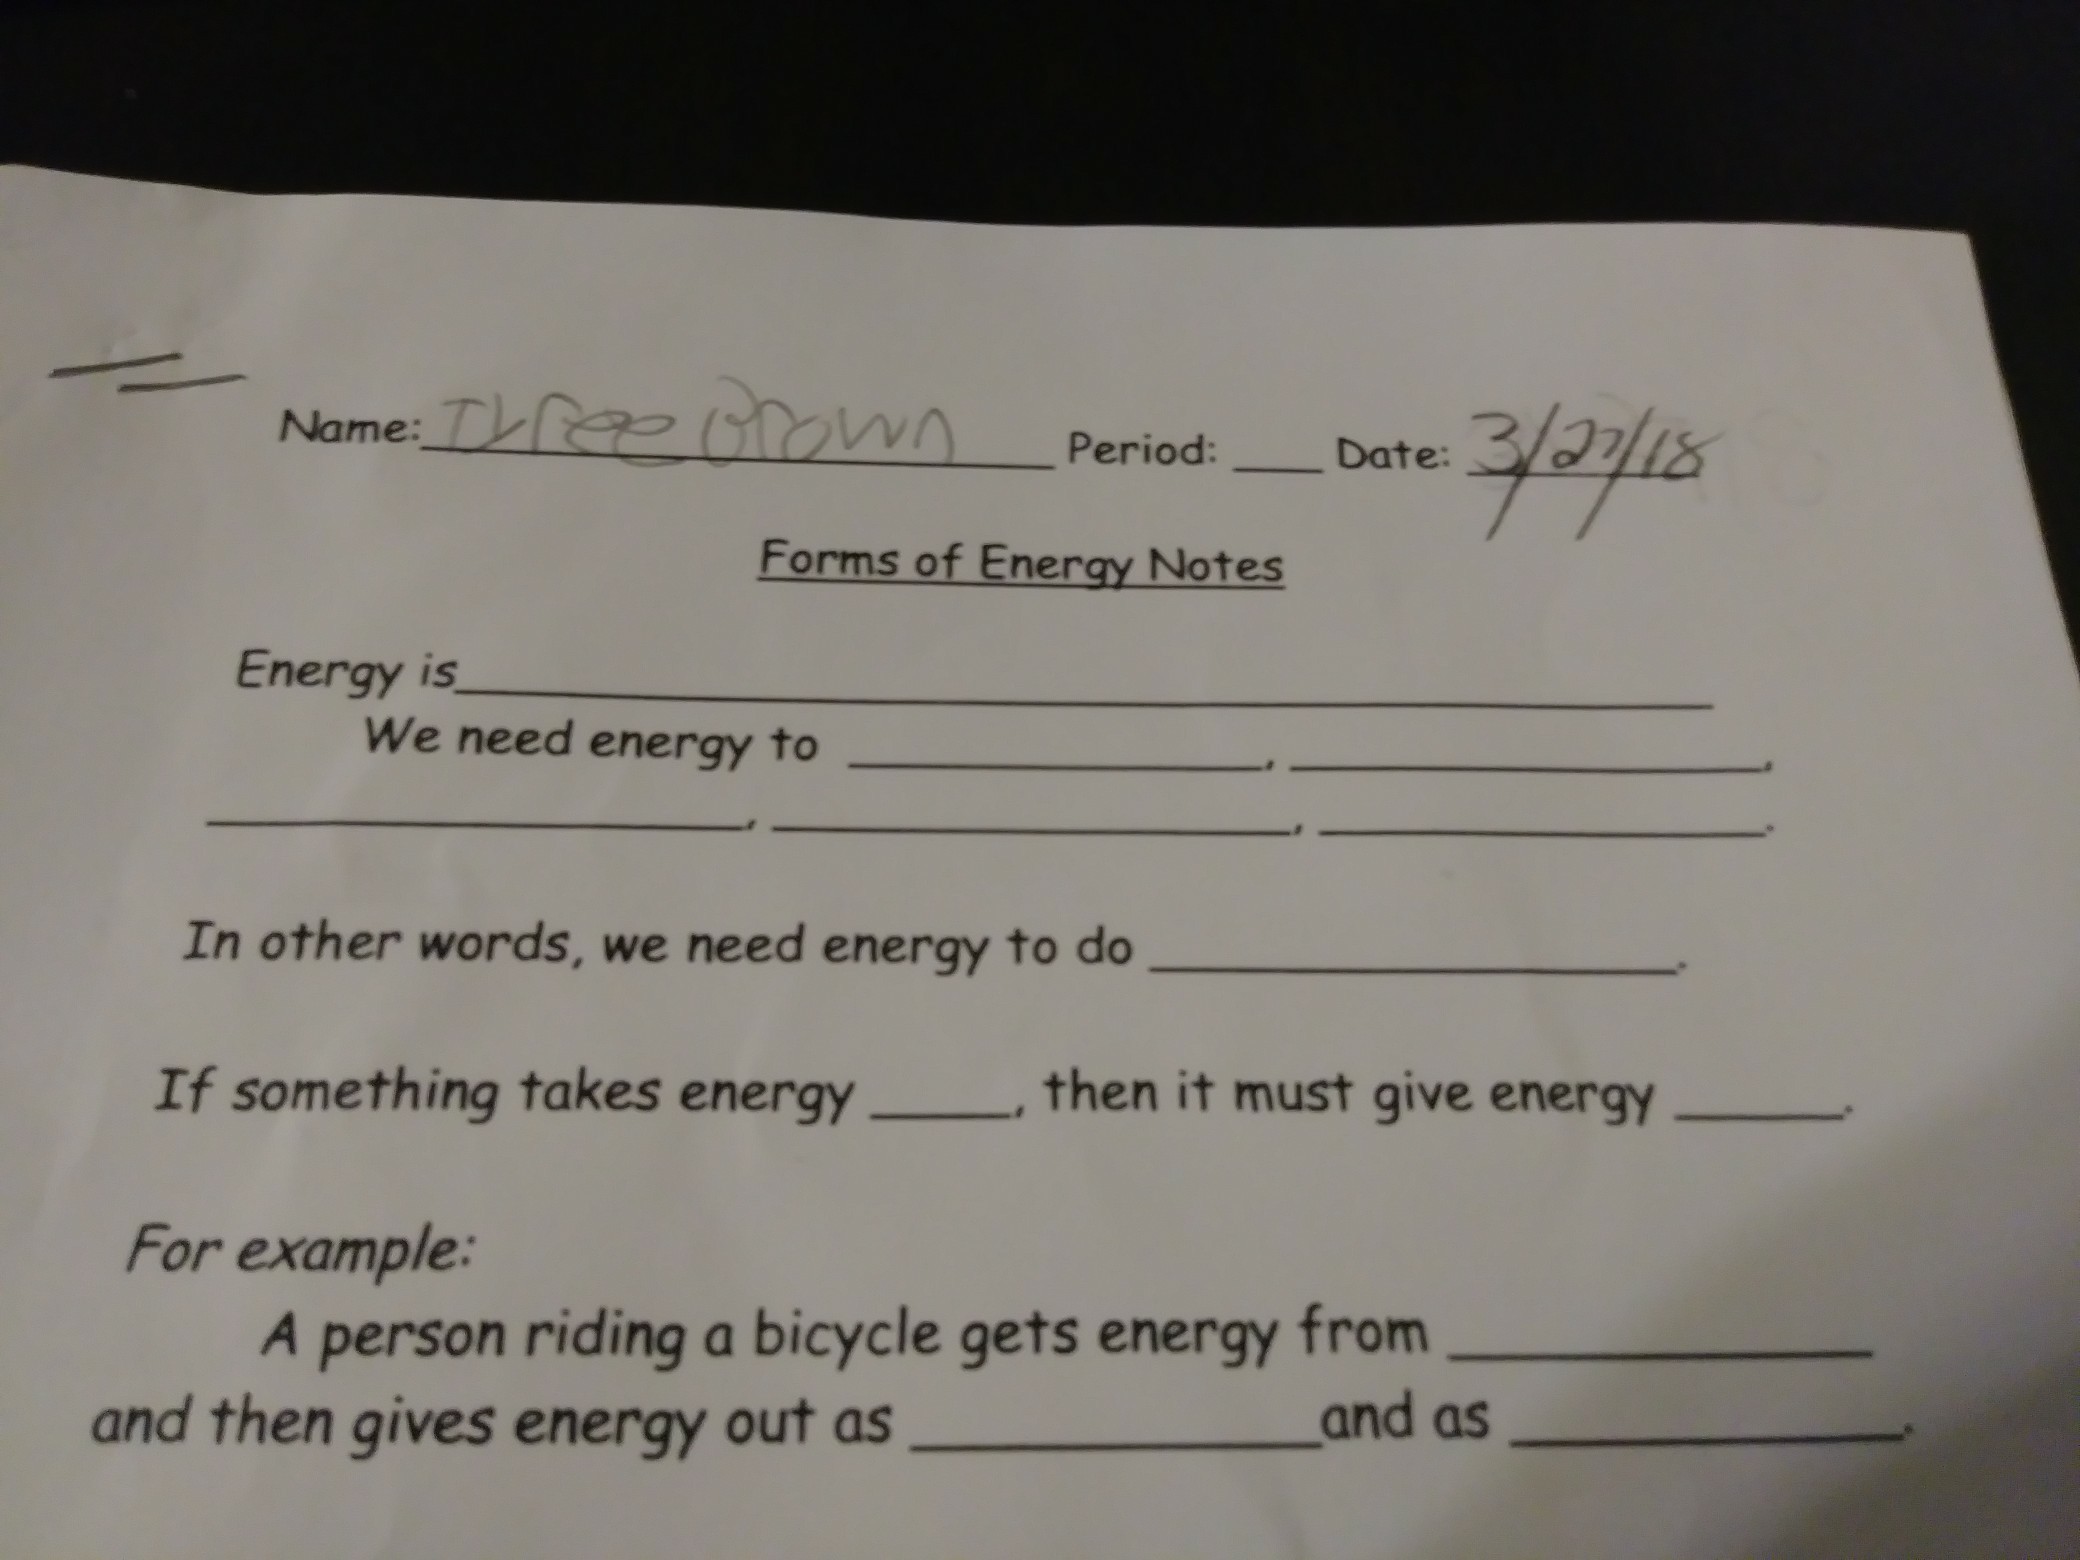 Name: Tyree Brown Period: ___ Date: 3/27/18
Forms of Energy Notes
Energy is
We need energy to ____, ____,
____, ____, ____.
In other words, we need energy to do ____.
If something takes energy ____, then it must give energy ____.
For example:
A person riding a bicycle gets energy from ____
and then gives energy out as ____ and as ____.